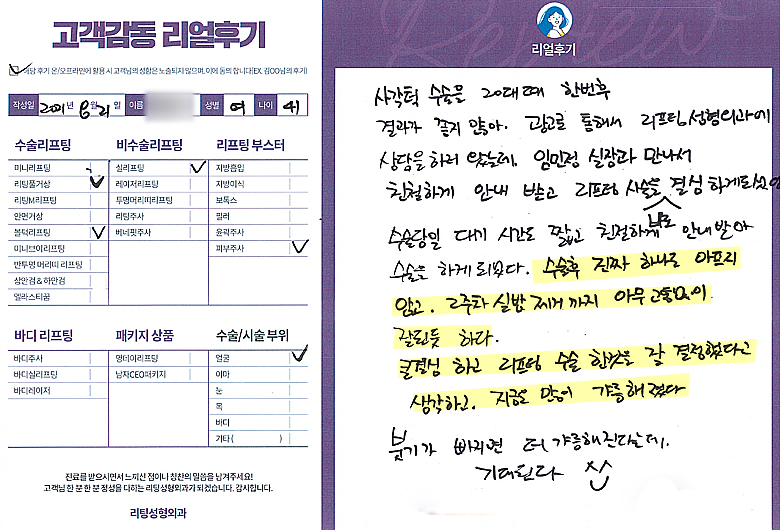 고객감동 리얼후기
해당 후기 온/오프라인에 활용 시 고객님의 성함은 노출되지 않으며, 이에 동의 합니다(EX. 김OO님의 후기)
작성일 2021년 8월 21일 이름 성별 여 나이 41
수술리프팅 비수술리프팅 리프팅 부스터
미니리프팅 실리프팅 지방흡입
리팅풀거상 레이저리프팅 지방이식
리팅M리프팅 투명머리띠리프팅 보톡스
안면거상 리팅주사 필러
볼턱리프팅 베네핏주사 윤곽주사
미니브이리프팅 피부주사
반투명 머리띠 리프팅
상안검 & 하안검
엘라스티꿈
바디 리프팅 패키지 상품 수술/시술 부위
바디주사 명티어리프팅 얼굴
바디실리프팅 남자CEO패키지 이마
바디레이저 눈
목
바디
기타 ( )
진료를 받으시면서 느끼신 점이나 칭찬의 말씀을 남겨주세요!
고객님 한 분 한 분 정성을 다하는 리팅성형외과가 되겠습니다. 감사합니다.
리팅성형외과
Review
리얼후기
사각턱 수술을 20대때 한번후
결과가 좋지 않아. 광고를 통해서 리프팅성형외과에
상담을 하러 왔는데, 임민정 실장과 만나서
친절하게 안내 받고 리프팅 시술을 결심 하게되었
수술당일 대기 시간도 짧고 친절하게 안내 받아
수술을 하게 되었다. 수술후 진짜 하나도 아프지
않고. 2주차 실밥 제거 까지 아무 고통없이
잘된듯 하다.
큰결심 하고 리프팅 수술 한것을 잘 결정했다고
생각하고. 지금도 많이 갸름해졌다
붓기가 빠지면 더 갸름해진다는데.
기대된다